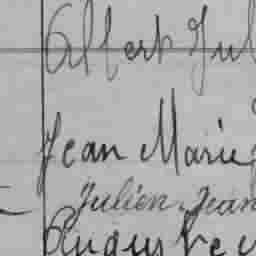 Albert Jul
Jean Marie
Julien Jean
Auguste